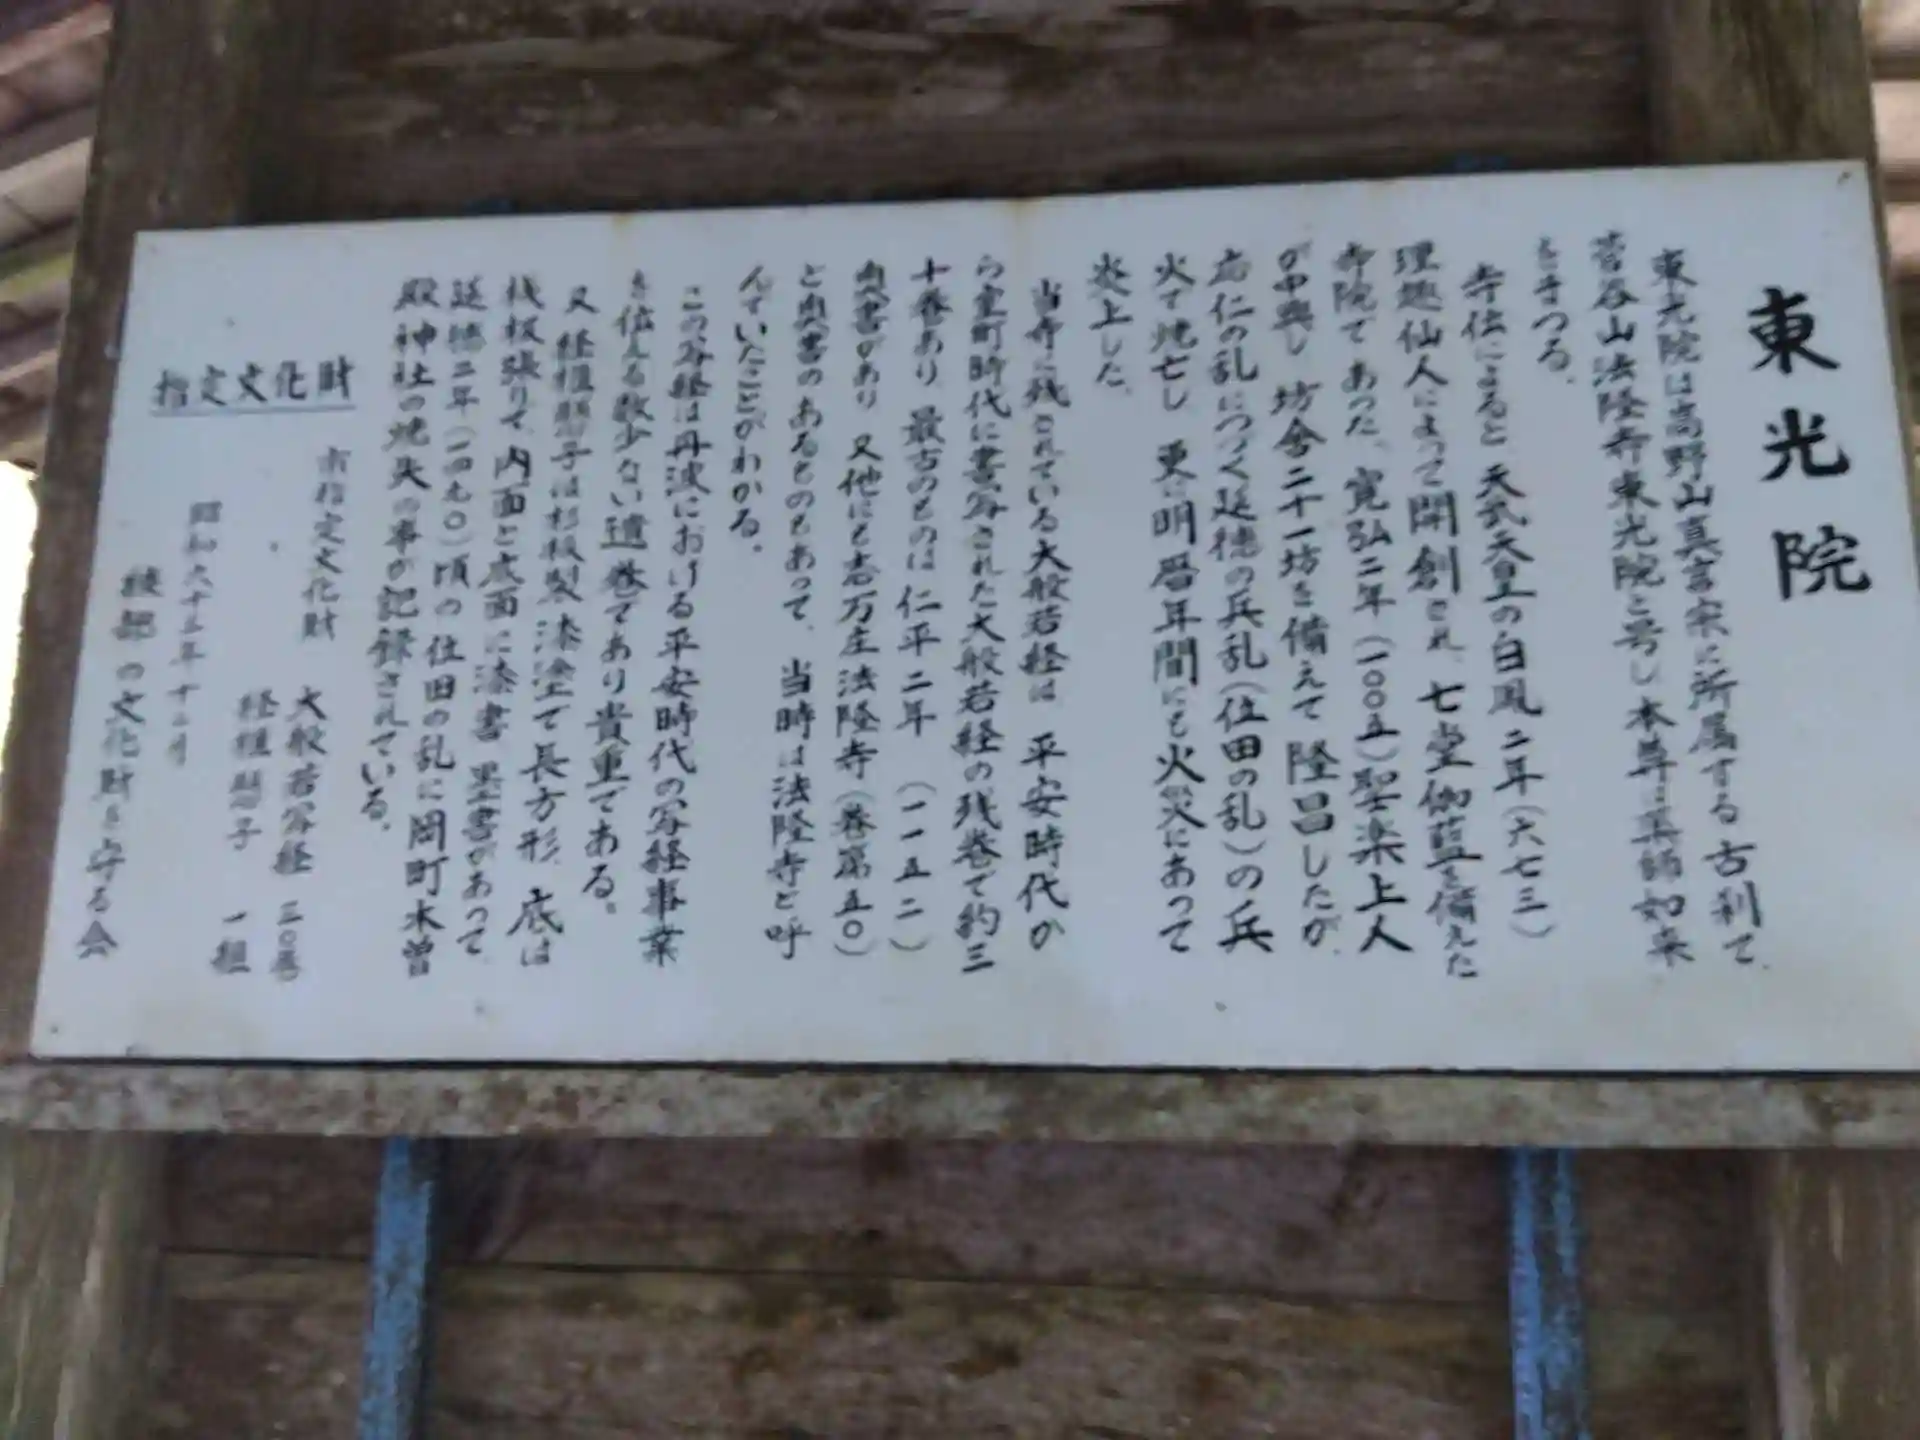 東光院
東光院は高野山真言宗に所属する古刹で、
菩谷山法隆寺東光院と号し本尊に薬師如来
をまつる。
寺伝によると天武天皇の白鳳二年(六七三)
理趣仙人によって開創され、七堂伽藍を備えた
寺院であった。寛弘二年(一〇〇五)聖楽上人
が中興し坊舎二十一坊を備えて隆昌したが、
応仁の乱につづく延徳の兵乱(位田の乱)の兵
火で焼亡し更に明暦年間にも火災にあって
炎上した。
当寺に残されている大般若経は、平安時代か
ら室町時代に書写された大般若経の残巻で約三
十巻あり、最古のものは仁平二年(一一五二)
奥書があり又他にも志万庄法隆寺(巻第五〇)
と奥書のあるものもあって、当時は法隆寺と呼
んでいたことがわかる。
この写経は丹波における平安時代の写経事業
を伝える数少ない遺巻であり貴重である。
又経櫃懸子は杉板製漆塗で長方形、底は
桟板張りで、内面と底面に漆書、墨書があって、
延徳二年(一四九〇)頃の位田の乱に岡町木曽
殿神社の焼失の事が記録されている。
指定文化財
市指定文化財 大般若写経 三〇巻
経櫃懸子 一組
昭和六十三年十二月
綾部の文化財を守る会